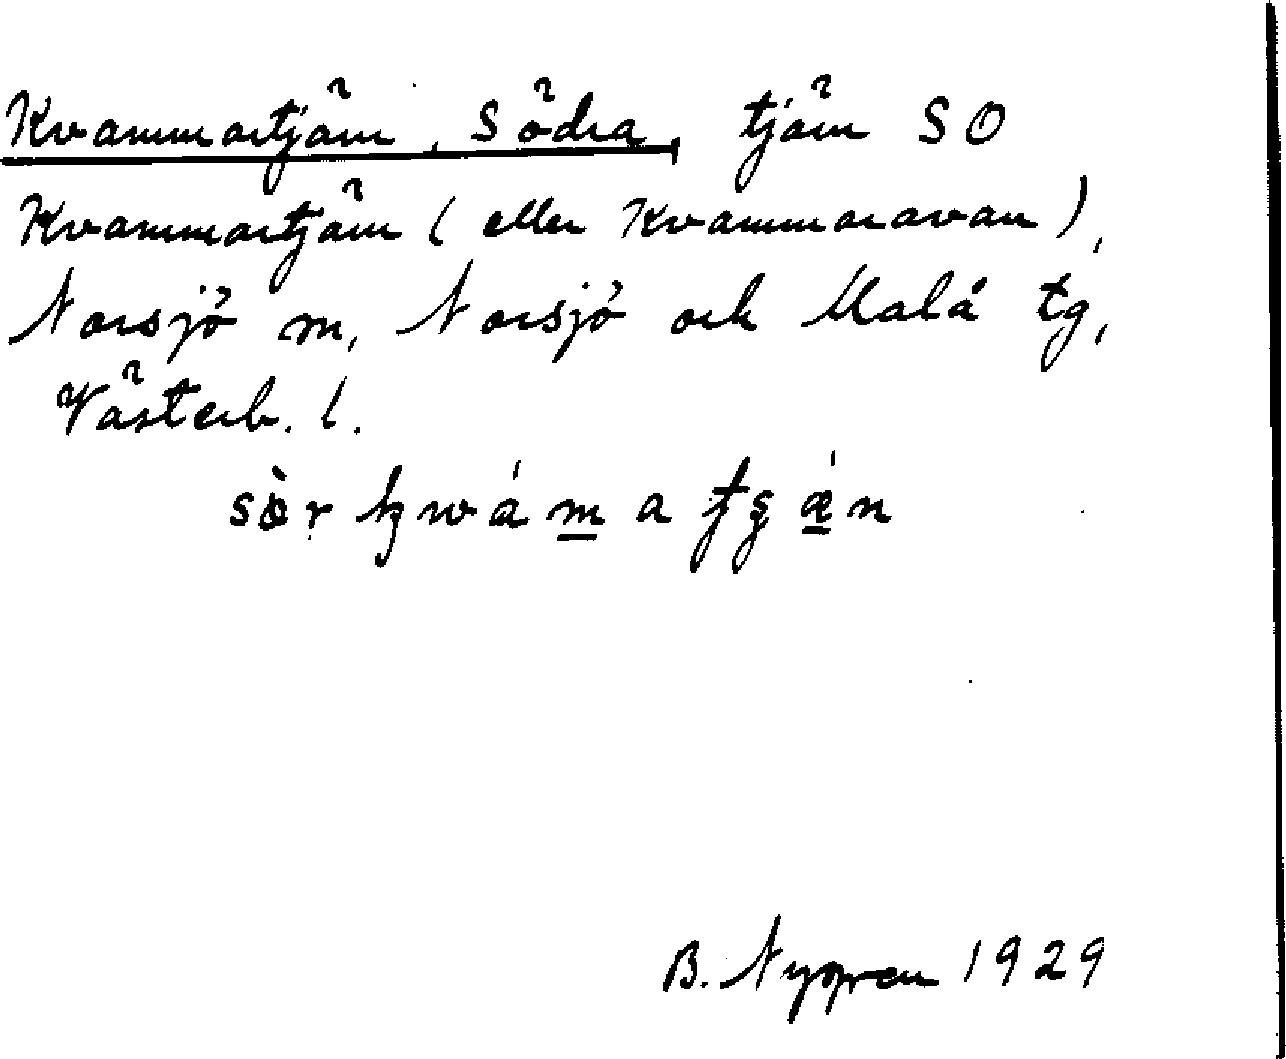 Kvammartjärn, Södra, tjärn SO
Kvammartjärn (eller Kvammaravan),
Norsjö sn, Norsjö och Malå tg,
Västerb. l.
B. Nygren 1929